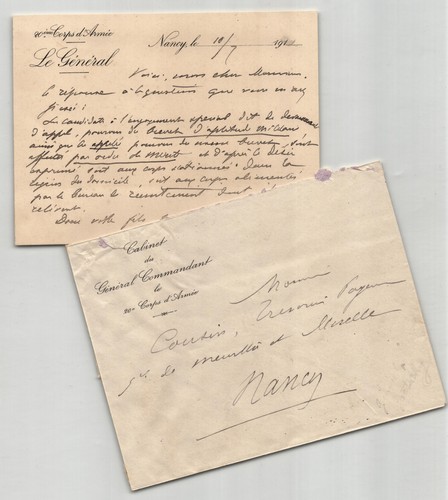 20ème Corps d'Armée
Le Général
Nancy, le 10/7 191
Voici, mon cher Monsieur,
la réponse à la question que vous m'avez
posée :
Les candidats à l'engagement spécial dit de devancement
d'appel, pourvus du brevet d'aptitude militaire
ainsi que les appelés pourvus du même brevet, sont
affectés par ordre de mérite et d'après le désir
exprimé soit aux corps stationnés dans la
région du domicile, soit aux corps alimentés
par le bureau de recrutement dont ils
relèvent.
Donc votre fils
Cabinet
du
Général Commandant
le
20e Corps d'Armée
Monsieur
Cousin, Trésorier Payeur
Gal de Meurthe et Moselle
Nancy